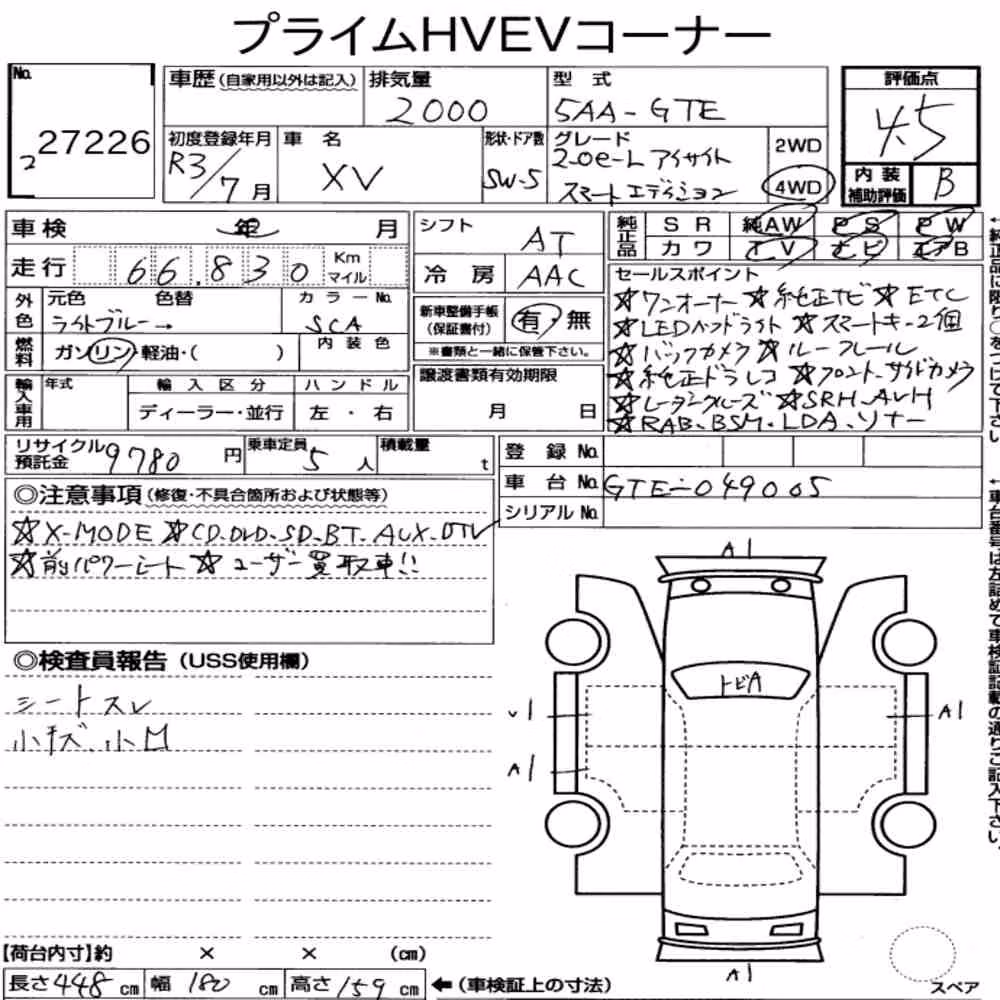 プライムHVEVコーナー
No.
2 27226
車歴 (自家用以外は記入)
排気量
2000
型式
5AA-GTE
評価点
4.5
内装補助評価 B
初度登録年月
R3/7月
車名
XV
形状・ドア数
SW-5
グレード
2.0e-L アイサイト
スマートエディション
2WD
4WD
車検 年 月
走行 66,830 Km マイル
外色 元色 色替 カラーNo.
ライトブルー→ SCA
燃料 ガソリン・軽油・( ) 内装色
輸入車用 年式 輸入区分 ハンドル
ディーラー・並行 左・右
シフト AT
冷房 AAC
新車整備手帳(保証書付) 有・無
※書類と一緒に保管下さい。
譲渡書類有効期限
月 日
純正品 SR 純AW PS PW
カワ TV ナビ エアB
セールスポイント
☆ワンオーナー ☆純正ナビ ☆ETC
☆LEDヘッドライト ☆スマートキー2個
☆バックカメラ ☆ルーフレール
☆純正ドラレコ ☆フロント、サイドカメラ
☆レーダークルーズ ☆SRH、AVH
☆RAB、BSM、LDA、ソナー
リサイクル預託金 9780円
乗車定員 5人
積載量 t
登録No.
車台No. GTE-049005
シリアルNo.
◎注意事項 (修復・不具合箇所および状態等)
☆X-MODE ☆CD、DVD、SD、BT、AUX、DTV
☆前パワーシート ☆ユーザー買取車!!
◎検査員報告 (USS使用欄)
シートスレ
小キズ、小凹
A1
トビA
A1
A1
A1
スペア
【荷台内寸】約 × × (cm)
長さ448cm 幅180cm 高さ159cm ←(車検証上の寸法)
←純正品に限り○をつけて下さい。
←車台番号は左詰めで車検証記載の通りご記入下さい。